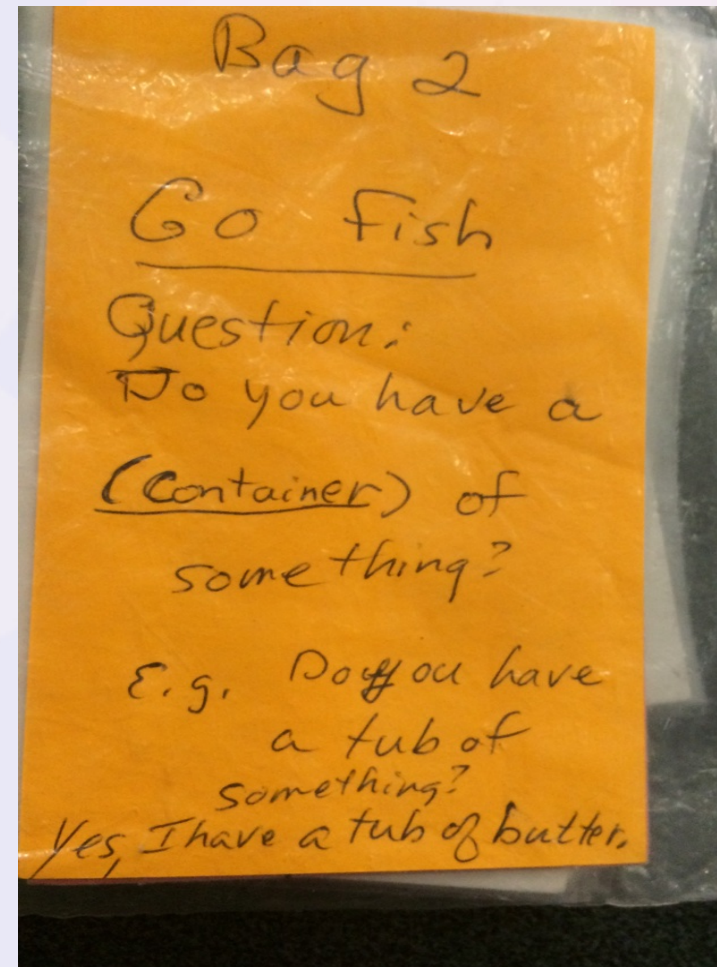 Bag 2
Go Fish
Question:
Do you have a
(Container) of
something?
E.g. Do you have
a tub of
something?
Yes, I have a tub of butter.